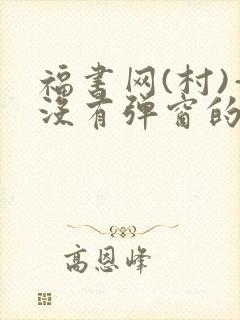 福书网(村)
没有弹窗的
高恩峰